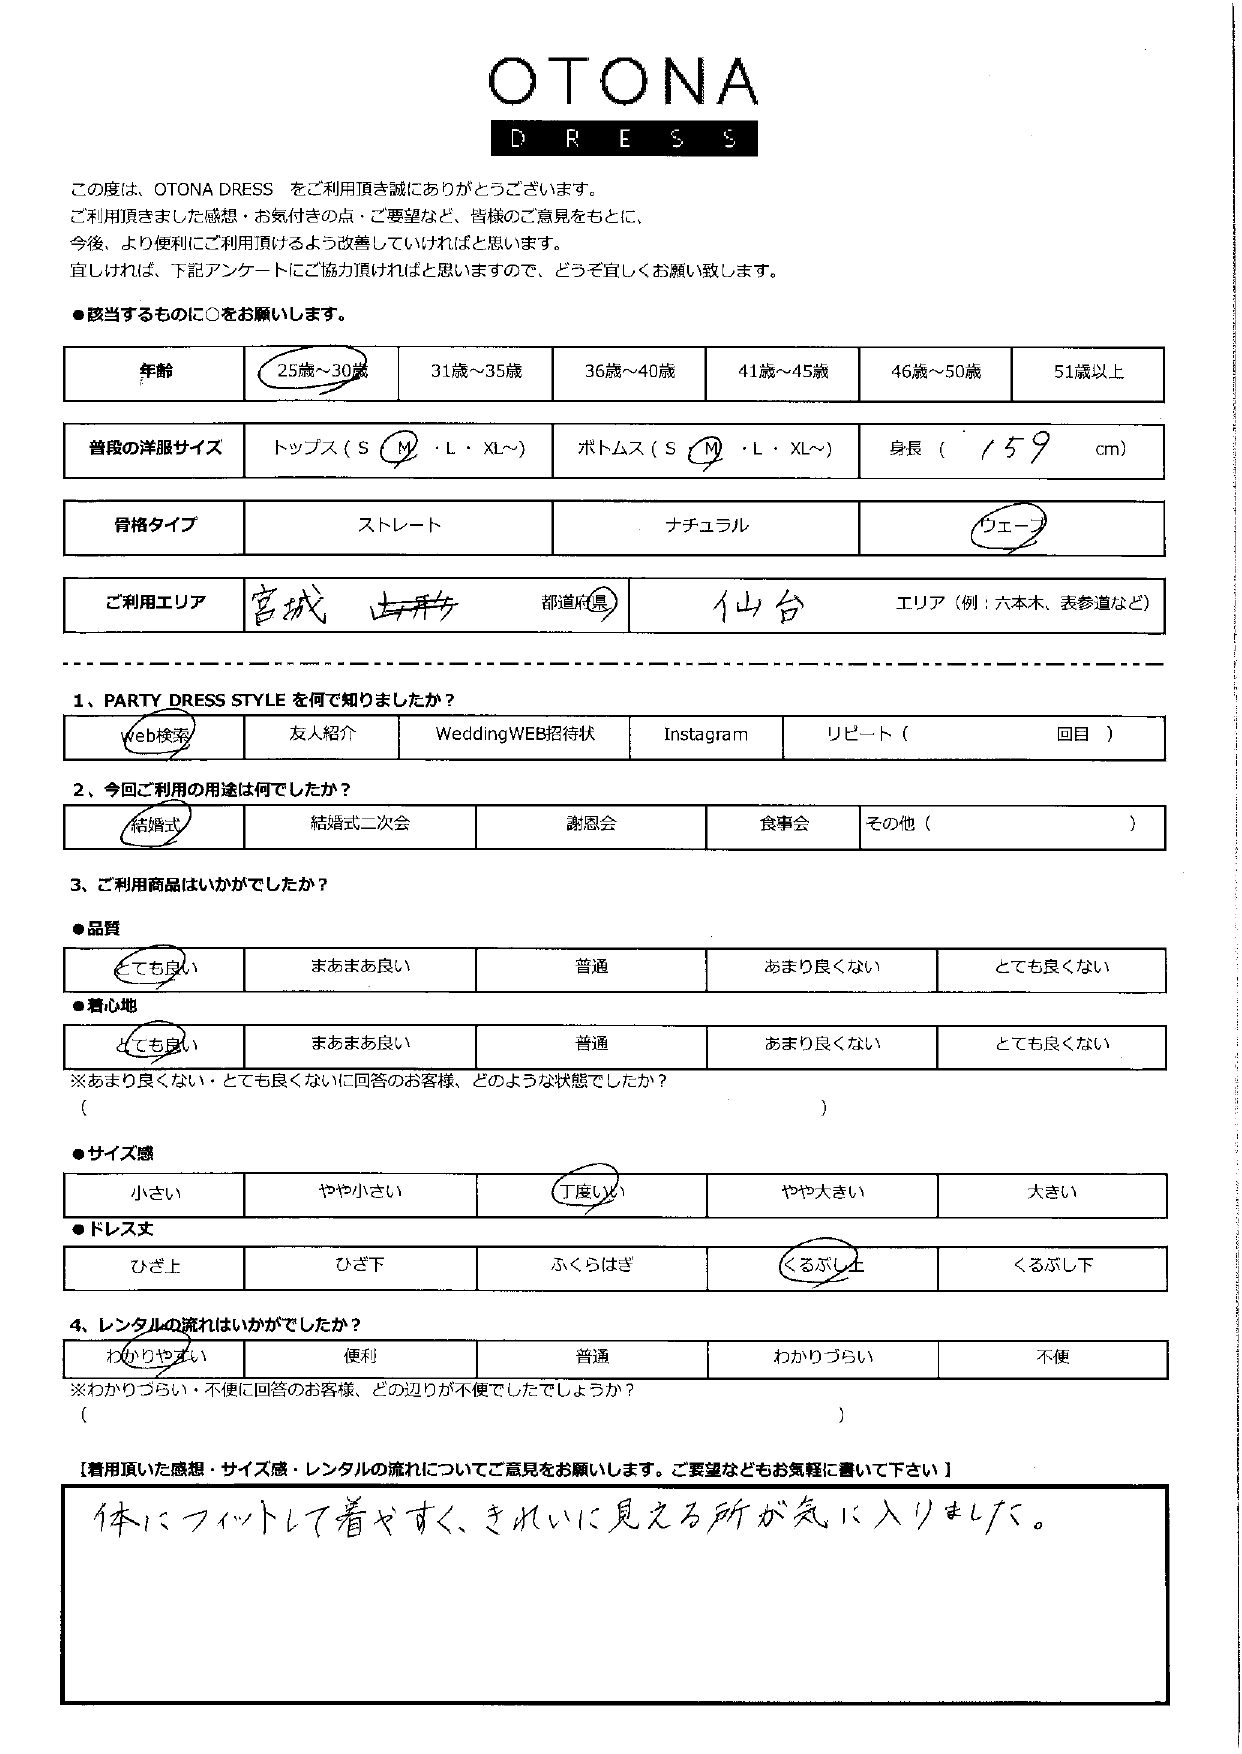 OTONA
DRESS
この度は、OTONA DRESS をご利用頂き誠にありがとうございます。
ご利用頂きました感想・お気付きの点・ご要望など、皆様のご意見をもとに、
今後、より便利にご利用頂けるよう改善していければと思います。
宜しければ、下記アンケートにご協力頂ければと思いますので、どうぞ宜しくお願い致します。
●該当するものに○をお願いします。
年齢 25歳～30歳 31歳～35歳 36歳～40歳 41歳～45歳 46歳～50歳 51歳以上
普段の洋服サイズ トップス ( S M ・L ・ XL～) ボトムス ( S M ・L ・ XL～) 身長 ( 159 cm)
骨格タイプ ストレート ナチュラル ウェーブ
ご利用エリア 宮城 都道府県 仙台 エリア（例：六本木、表参道など）
1、PARTY DRESS STYLE を何で知りましたか？
web検索 友人紹介 WeddingWEB招待状 Instagram リピート ( 回目 )
2、今回ご利用の用途は何でしたか？
結婚式 結婚式二次会 謝恩会 食事会 その他 ( )
3、ご利用商品はいかがでしたか？
●品質
とても良い まあまあ良い 普通 あまり良くない とても良くない
●着心地
とても良い まあまあ良い 普通 あまり良くない とても良くない
※あまり良くない・とても良くないに回答のお客様、どのような状態でしたか？
( )
●サイズ感
小さい やや小さい 丁度いい やや大きい 大きい
●ドレス丈
ひざ上 ひざ下 ふくらはぎ くるぶし上 くるぶし下
4、レンタルの流れはいかがでしたか？
わかりやすい 便利 普通 わかりづらい 不便
※わかりづらい・不便に回答のお客様、どの辺りが不便でしたでしょうか？
( )
【着用頂いた感想・サイズ感・レンタルの流れについてご意見をお願いします。ご要望などもお気軽に書いて下さい 】
体にフィットして着やすく、きれいに見える所が気に入りました。